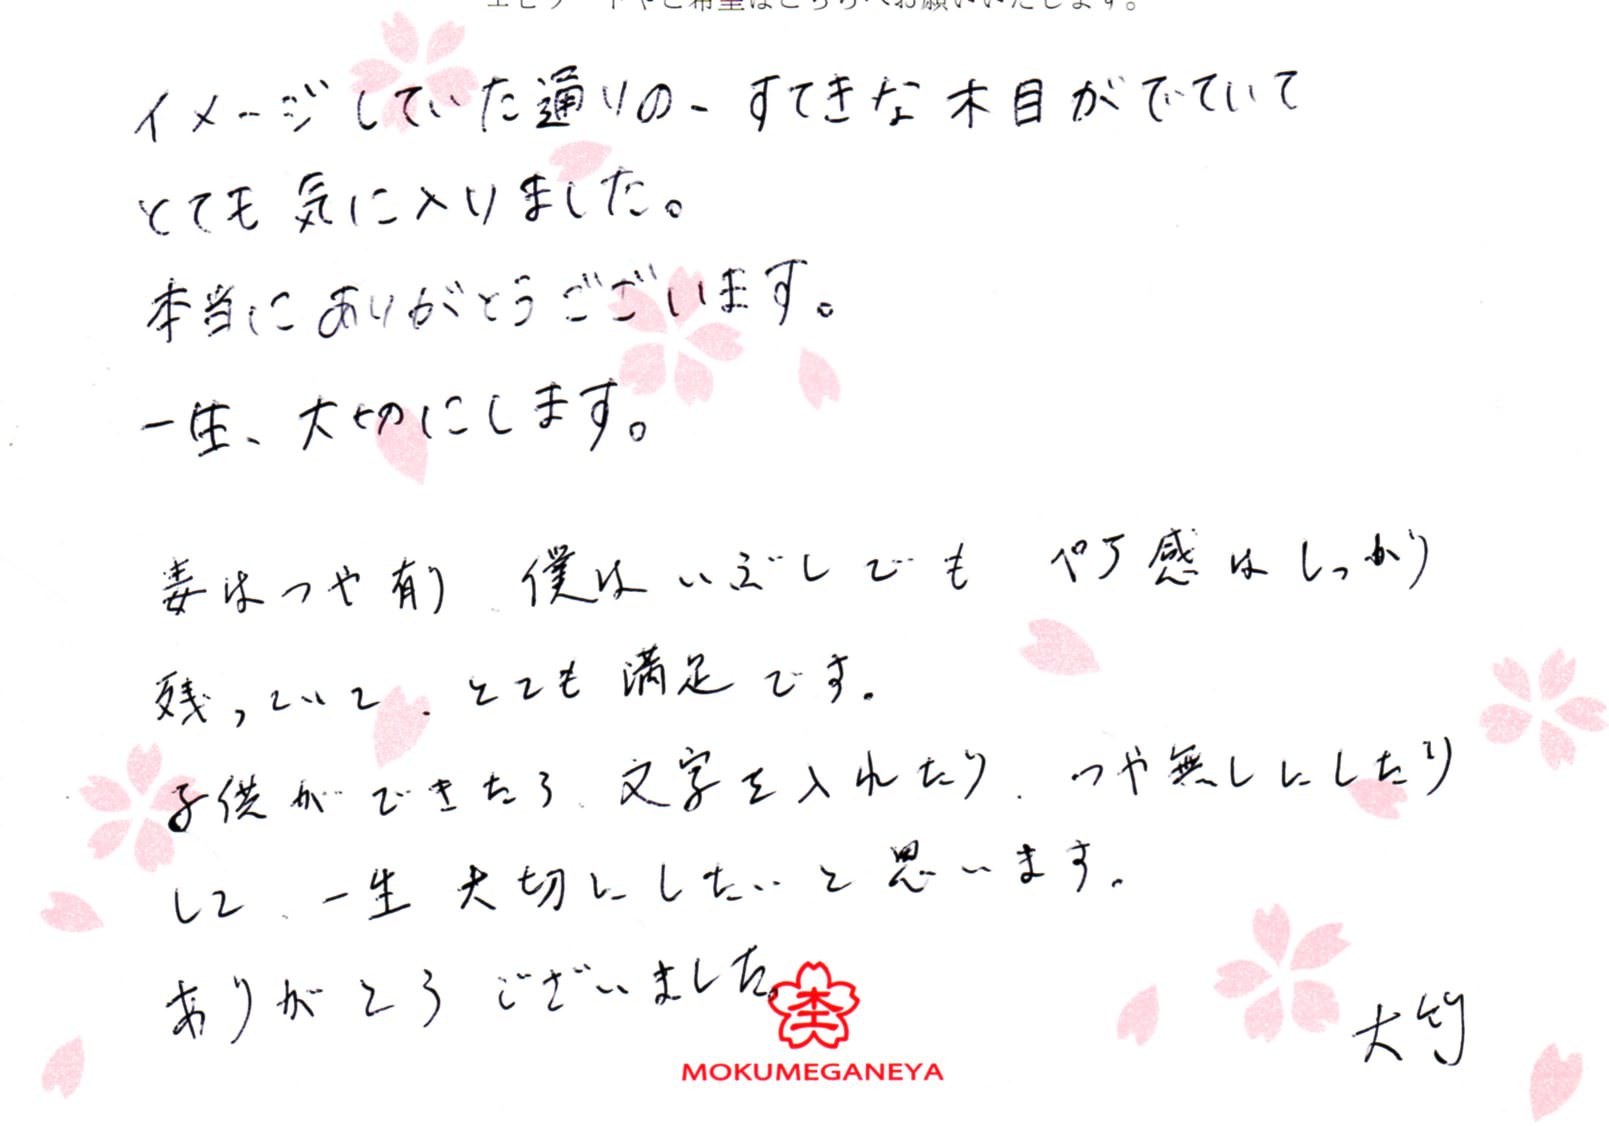 エピソードやご希望はこちらへお願いいたします。
イメージしていた通りのーすてきな木目がでていて
とても気に入りました。
本当にありがとうございます。
一生、大切にします。
妻はつや有り、僕はいぶしでも ペア感はしっかり
残っていて、とても満足です。
子供ができたら、文字を入れたり、つや無しにしたり
して、一生大切にしたいと思います。
ありがとうございました。
大竹
MOKUMEGANEYA